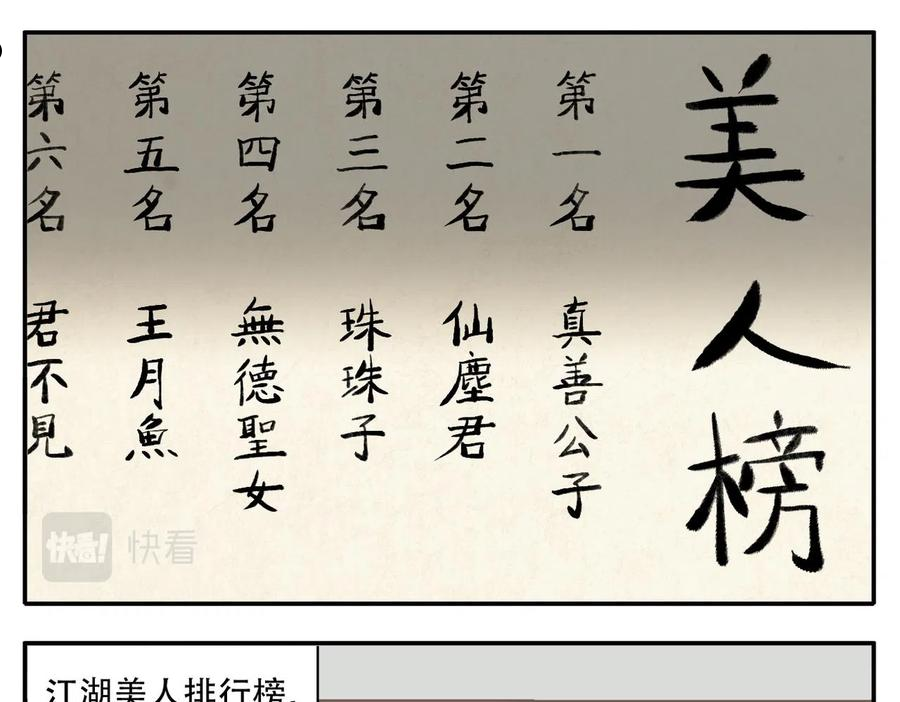 美人榜
第一名 真善公子
第二名 仙塵君
第三名 珠珠子
第四名 無德聖女
第五名 王月魚
第六名 君不見
快看!
快看
江湖美人排行榜,